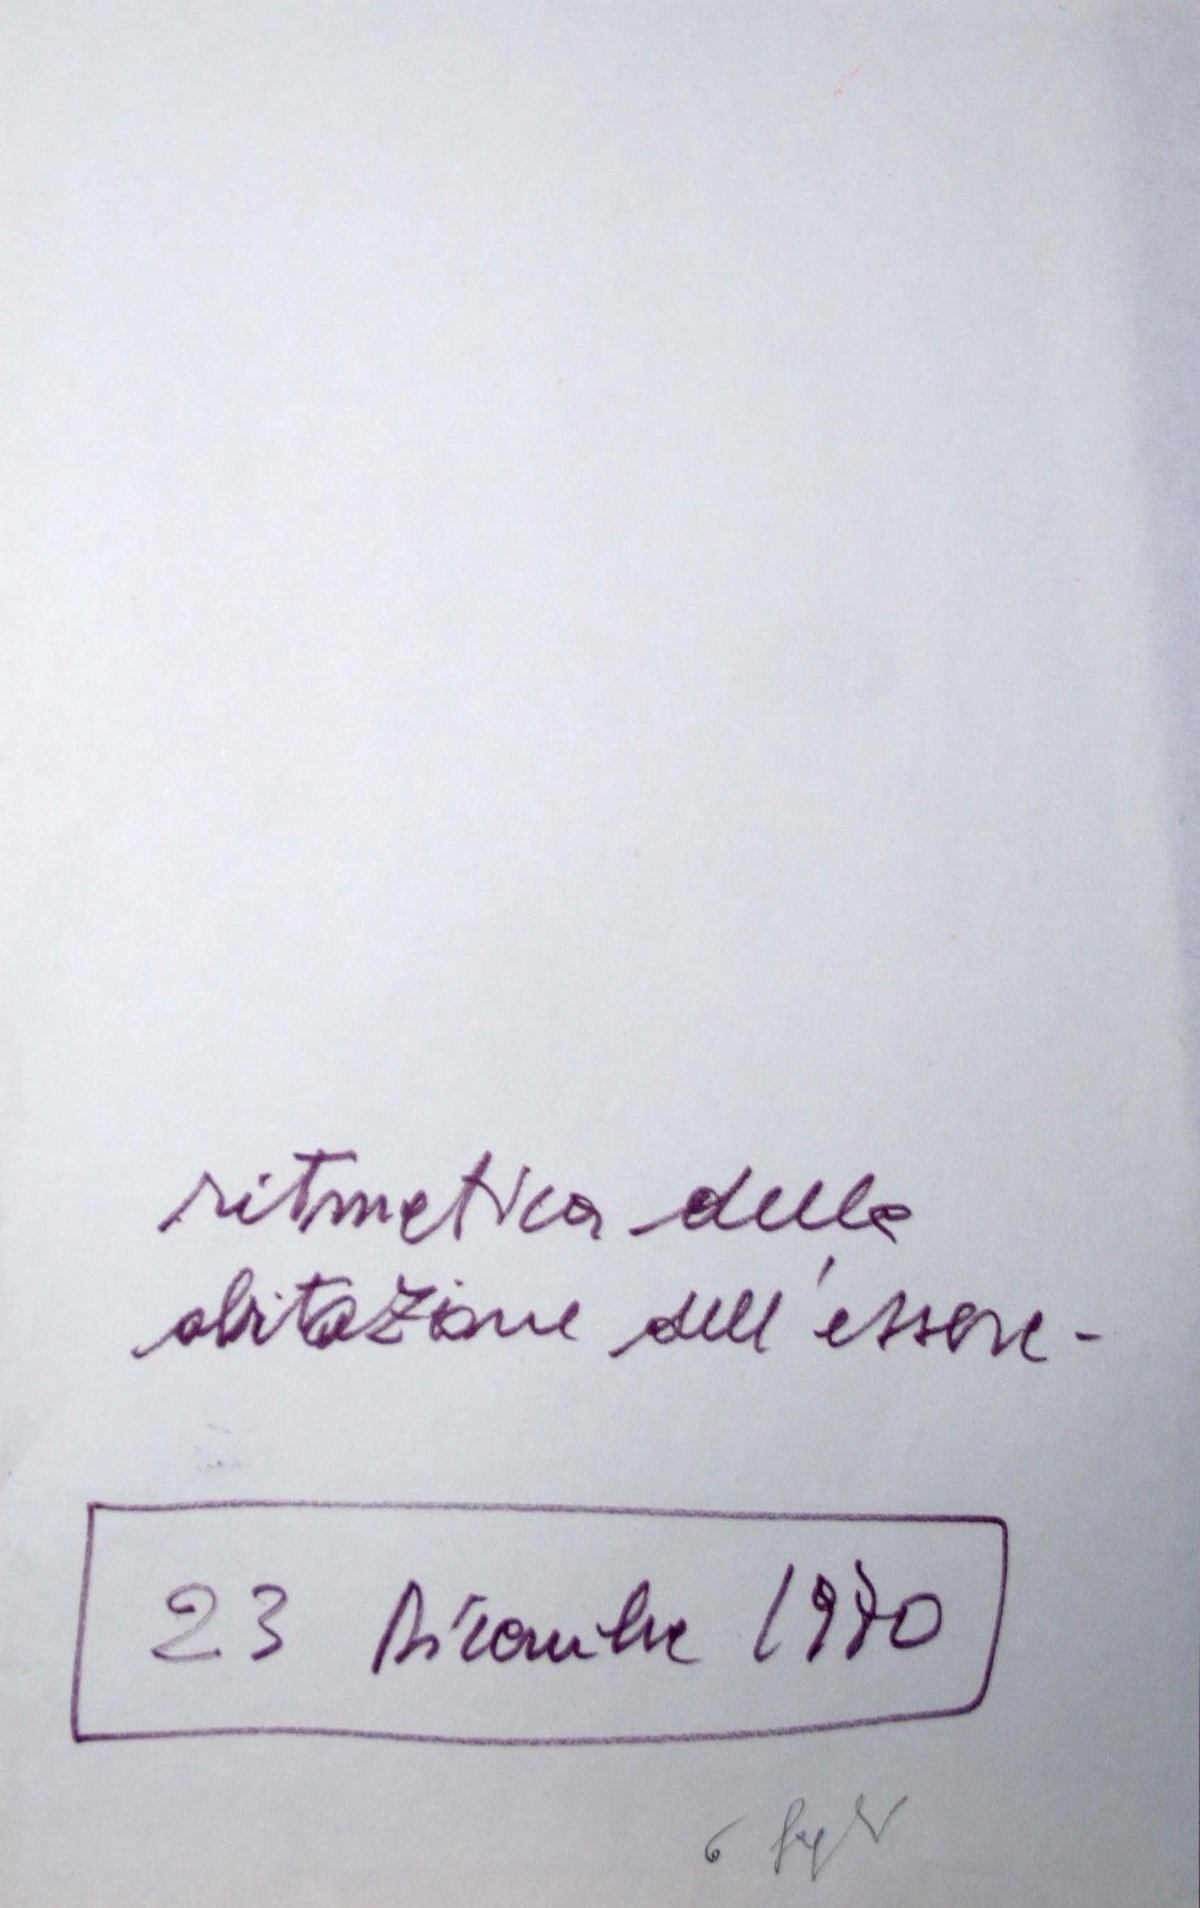 ritmetica della
abitazione dell'essere -
23 Dicembre 1970
6